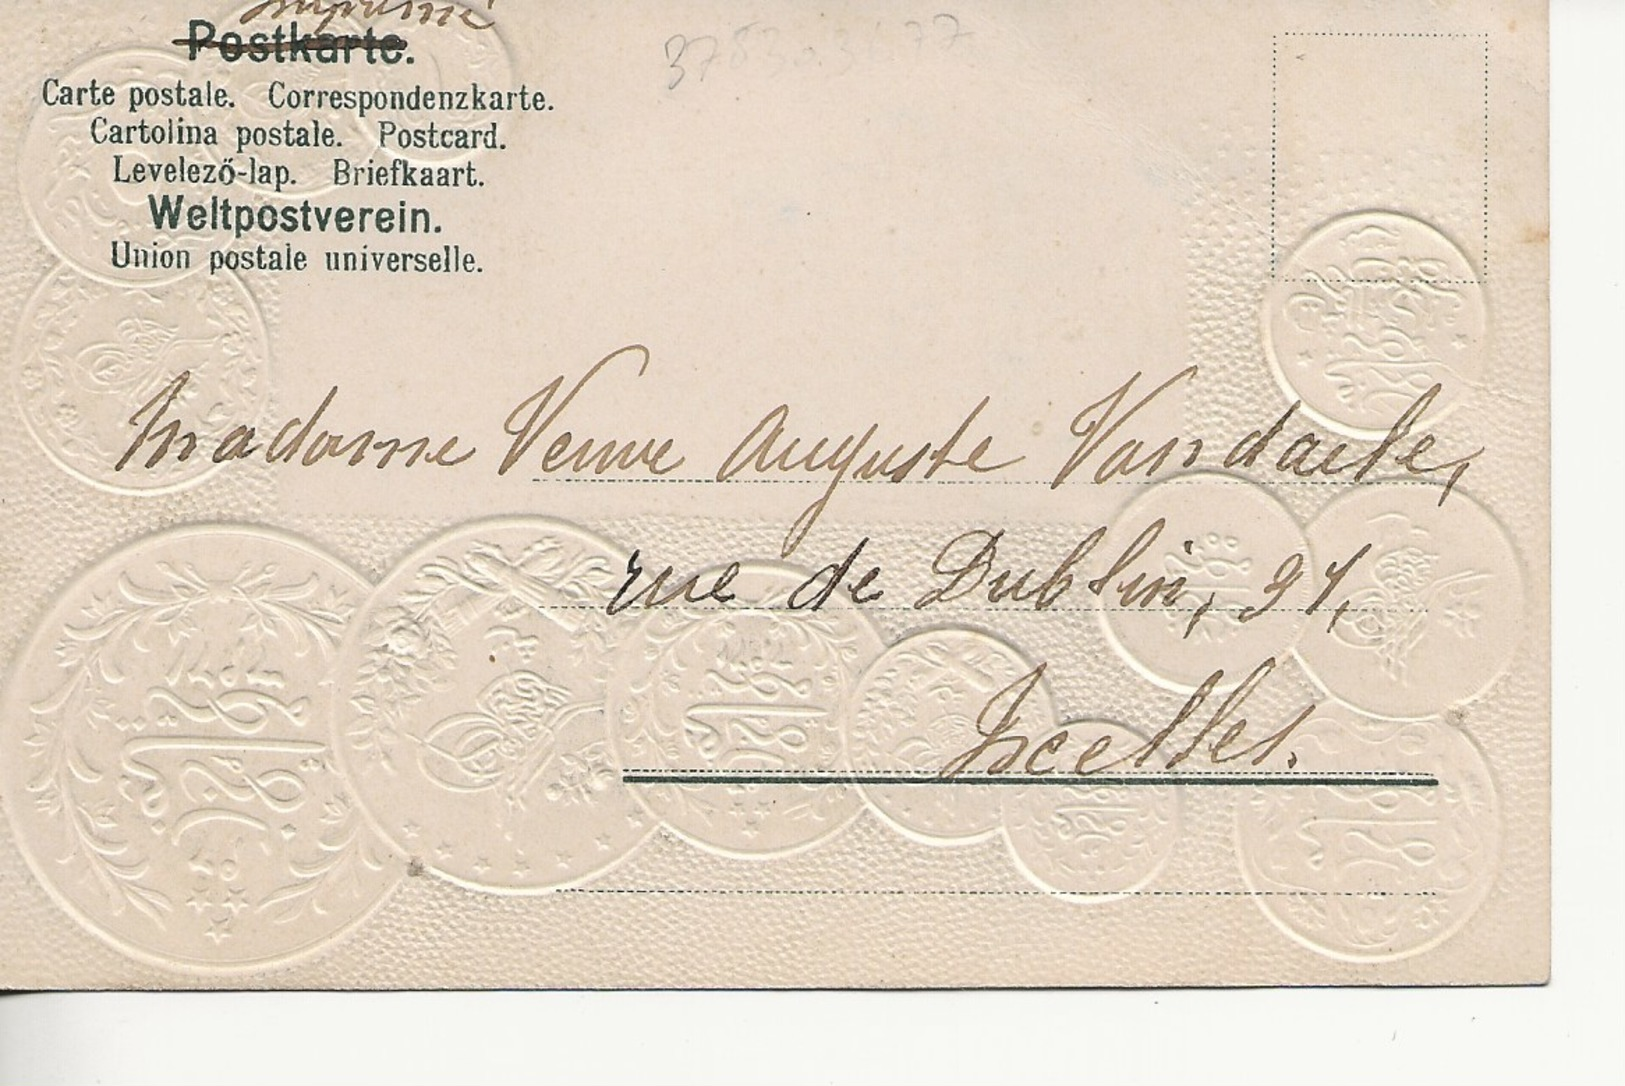 Imprimé
Postkarte.
Carte postale. Correspondenzkarte.
Cartolina postale. Postcard.
Levelező-lap. Briefkaart.
Weltpostverein.
Union postale universelle.
Madame Veuve Auguste Vandaele,
rue de Dublin, 21,
Ixelles.